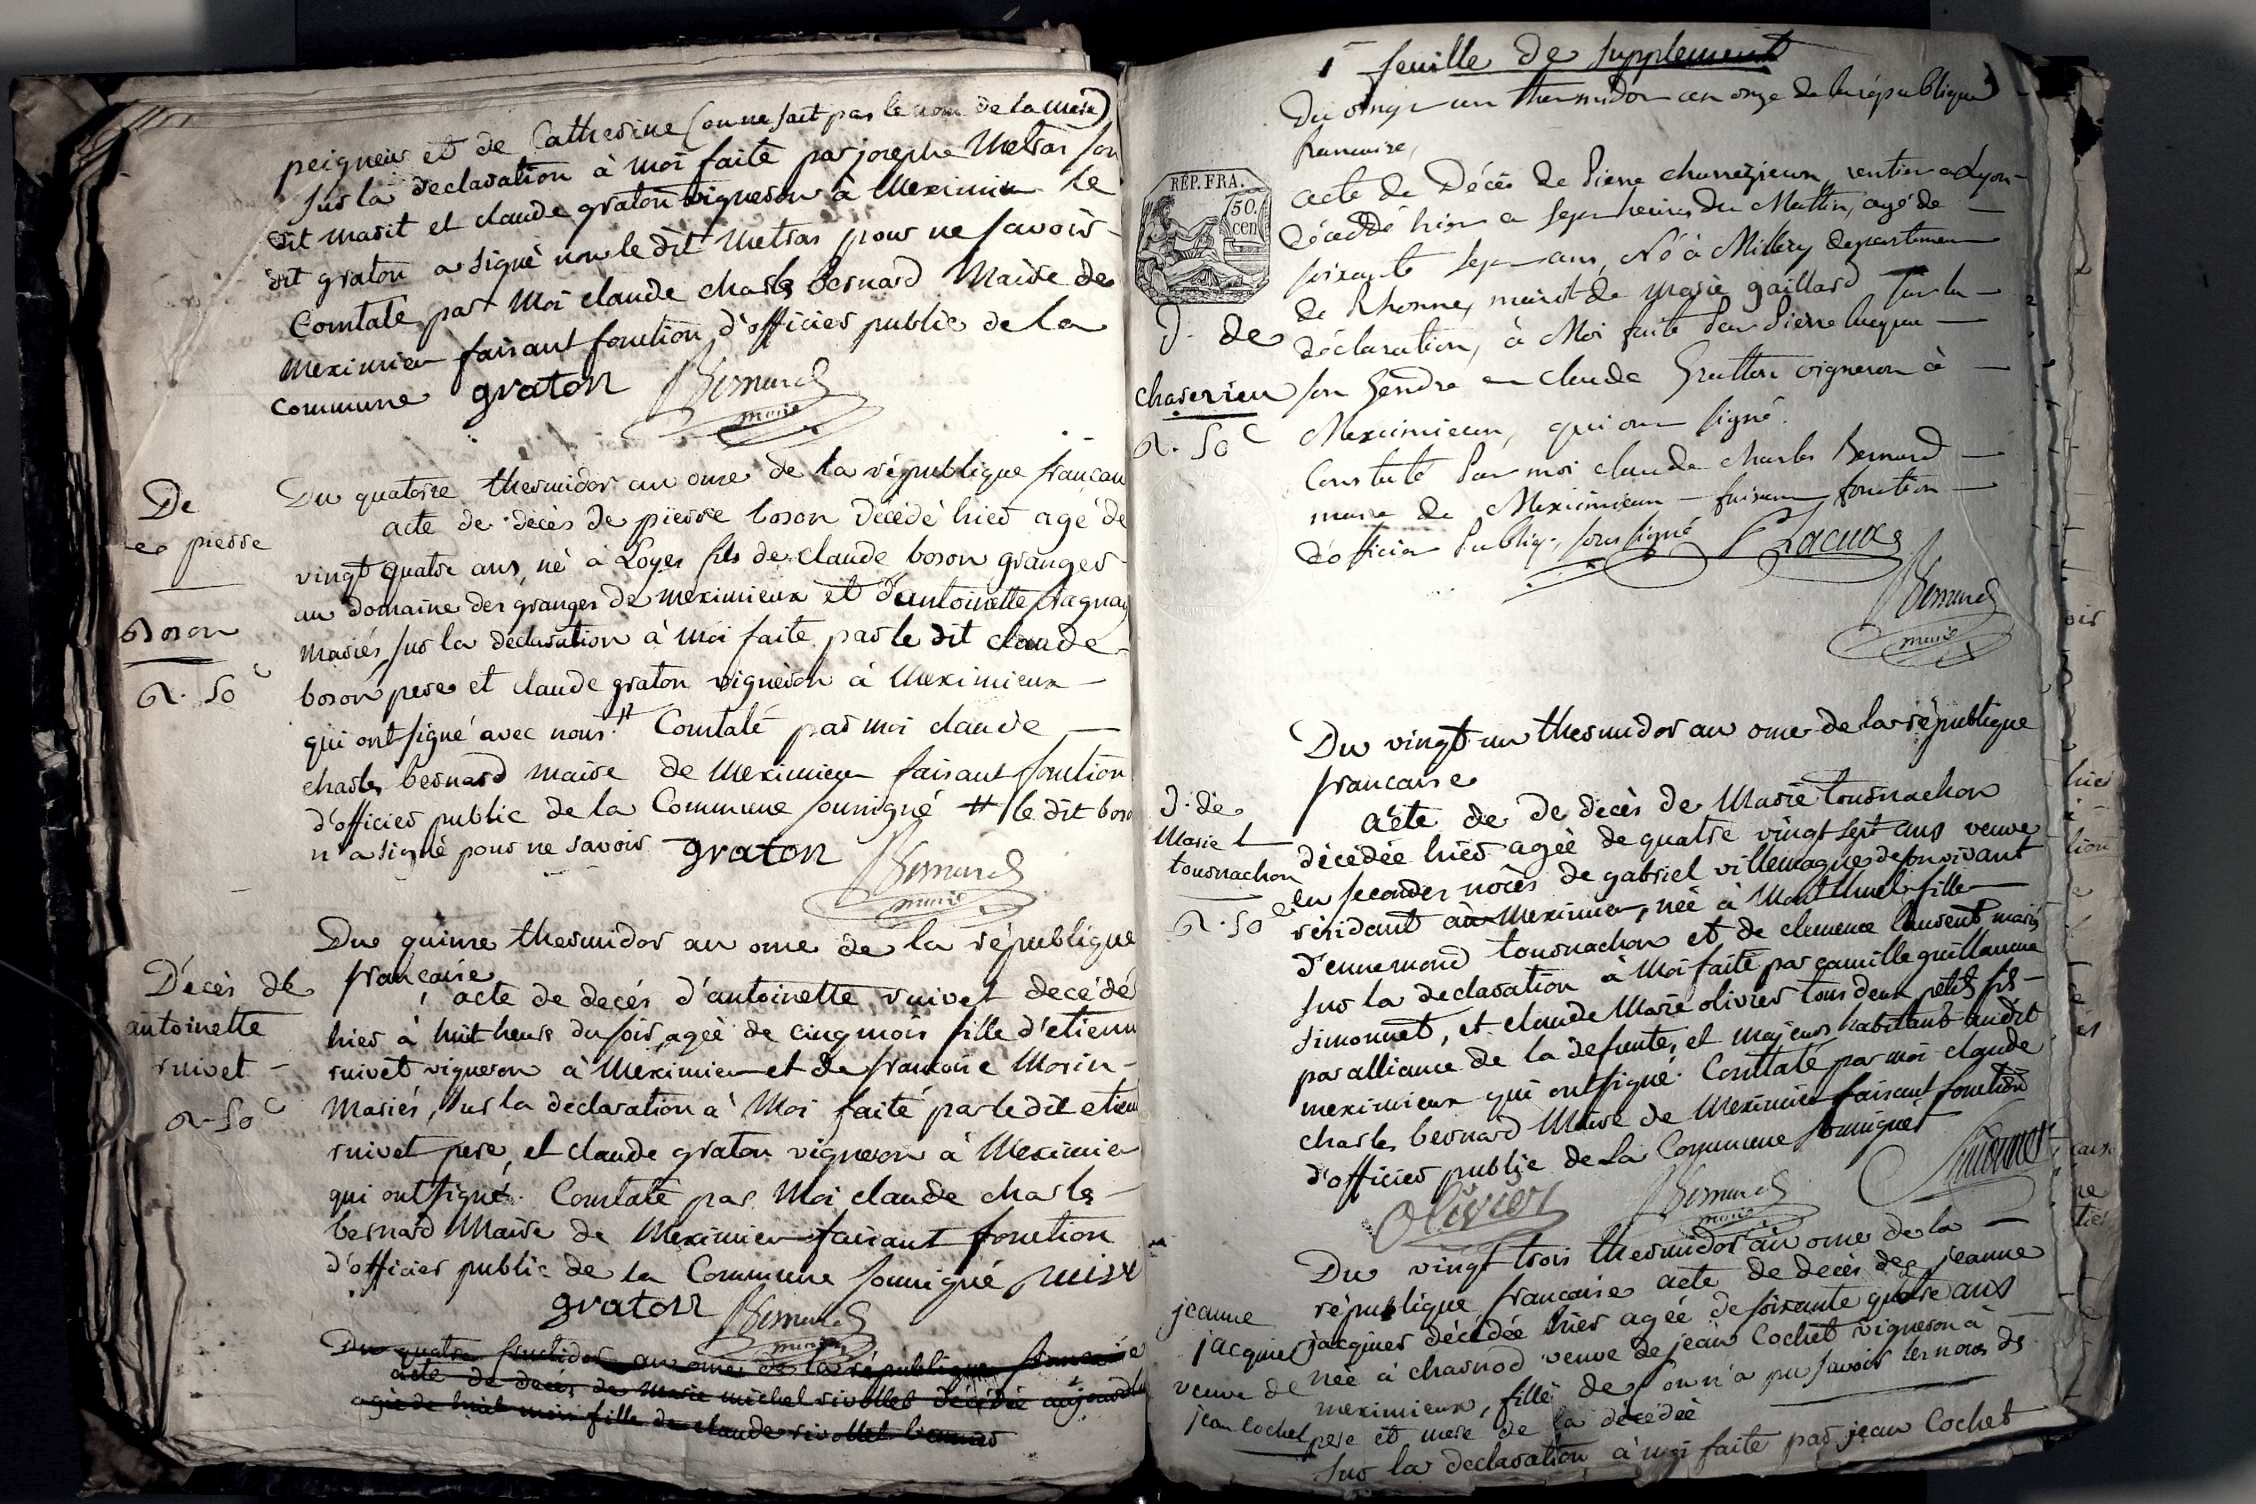 peigneur et de Catherine (on ne sait pas le nom de la mere)
sur la declaration à moi faite par josephe Metras son
dit marit et claude graton vigneron à Meximieu le
dit graton a signé non le dit Metras pour ne savoir
Constaté par Moi claude charles bernard Maire de
meximieu faisant fonction d'officier public de la
commune graton Bernard
maire
De
pierre
boson
R. 50 c
Du quatorze thermidor an onze de la république francau
acte de décès de pierre boson décédé hier agé de
vingt quatre ans, né à Loyes fils de claude boson granger
au domaine des granges de meximieux et d'antoinette
mariés, sur la déclaration à moi faite par le dit claude
boson pere et claude graton vigneron à Meximieux
qui ont signé avec nous # Constaté par moi claude
charles bernard maire de Meximieu faisant fonction
d'officier public de la Commune soussigné # le dit boso
n'a signé pour ne savoir graton Bernard
maire
Décès de
antoinette
ruivet
R. 50 c
Du quinze thermidor an onze de la république
francaise
acte de decés d'antoinette ruivet decédé
hier à huit heure du soir, agée de cinq mois fille d'etienn
ruivet vigneron à Meximieu et de francoise Morin
Mariés, sur la déclaration à Moi faite par le dit etien
ruivet pere, et claude graton vigneron à Meximieu
qui ont signé. Constaté par Moi claude charles
bernard Maire de Meximieu faisant fonction
d'officier public de la Commune soussigné ruive
graton Bernard
maire
Du quatre fructidor an onze de la république francaise
acte de decés de marie michel rivollet decédée aujourd
agée de huit mois fille de claude rivollet
1 feuille de supplement
Du vingt un thermidor an onze de la république
francaise,
RÉP. FRA.
50.
cen
D. de
chaserieu
R. 50 c
acte de Décès de Pierre rentier a Lyon
décédé hier a sept heures du Mattin, agé de
soixante sept ans, Né à Millery departement
de Rhonne, marit de marie gaillard sur la
déclaration, à Moi faite Par Pierre
son Gendre et claude Gratton vigneron à
Meximieux, qui ont signé.
Constaté Par moi claude charles Bernard
maire de Meximieux faisant fonction
d'officier Publiq., sous signé P Lacua
Bernard
maire
D. de
Marie
tournachon
R. 50 c
Du vingt un thermidor an onze de la république
francaise
acte de de decès de Marie tournachon
décédée hier agée de quatre vingt sept ans veuve
en secondes noces de gabriel villemagne de son vivant
résidant à Meximieu, née à Montluel fille
d'ennemond tournachon et de clemence laurent mariés
sur la declaration à Moi faite par camille guillaume
simonnet, et claude Marie olivier tous deux petits fils
par alliance de la defunte, et majeurs habitant audit
meximieux qui ont signé. Constaté par moi claude
charles bernard Maire de Meximieu faisant fonction
d'officier public de la Commune soussignés
Olivier Bernard Simonnet
maire
jeanne
jacquier
veuve de
jean Cochet
Du vingt trois thermidor an onze de la
république francaise acte de decès de jeanne
jacquier décédée hier agée de soixante quatre ans
née à charnod veuve de jean Cochet vigneron à
meximieux, fille de (on n'a pu savoir les noms de
pere et mere de la décédée
sur la declaration à moi faite par jean Cochet